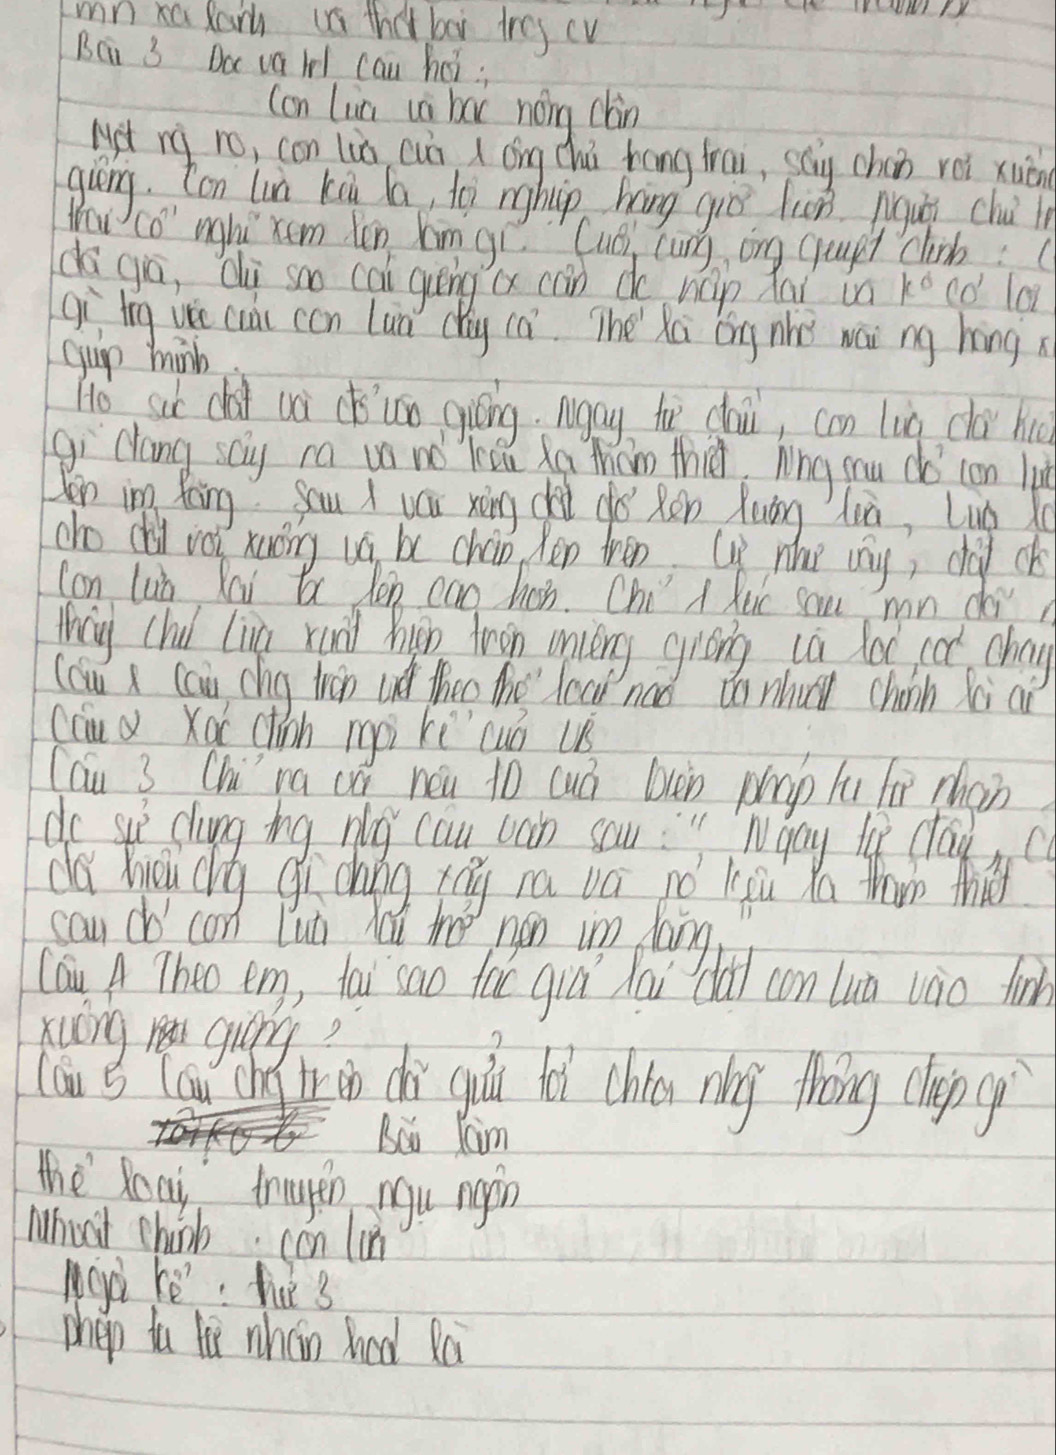 mn xa lánh và thất bại trog cv
Bài 3 Đọc và trl câu hỏi :
Con lừa và bác nông dân
Một ng nọ, con lừa của 1 ông chủ trang trại, sảy chân rơi xuống
giếng. Con lừa kêu la, tội nghiệp hàng giờ liền. Người chủ
trại cố nghĩ xem nên làm gì. Cuối cùng, ông quyết định :
đã già, dù sao cái giếng cx cần dc nấp lại và ko có lợi
gì trg việc cứu con lừa dậy cả. Thế là ông nhờ vài ng hàng x
giúp mình.
Họ xúc đất và đổ vào giếng. Ngay từ đầu, con lừa đã hiểu
gì đang sảy ra và nó kêu la thảm thiết. Nhg sau đó con lừa
nên im lặng. Sau 1 vài xẻng đất đổ lên lưng lừa, Lừa
cho đất rơi xuống và bc chân lên trên. Cứ như vậy, đất đổ
con lừa lại bc lên cao hơn. Chỉ 1 lúc sau mn đã
thấy chú lừa xuất hiện trên miệng giếng và lóc cóc chạy
Câu 1 Câu chg trên viết theo thể loại nào và nhvật chính là ai
Câu 2 Xác định ngôi kể của VB
Câu 3 Chỉ ra và nêu TD của biện pháp tu từ nhân
dc sử dụng trg nhg câu văn sau : " Ngay từ đầu, c
đã hiểu chg gì đang xảy ra và nó kêu la thảm thiết
sau đó con lừa lại trở nên im lặng,"
Câu 4 Theo em, tại sao tác giả lại đặt con lừa vào tình
xuống giếng ?
Câu 5 Câu chg trên đã gửi tới chta nhg thông điệp gì
Bài làm
thể loại truyện ngụ ngôn
Nhvật chính : con lừa
Ngôi kể : thứ 3
phép tu từ nhân hoá là